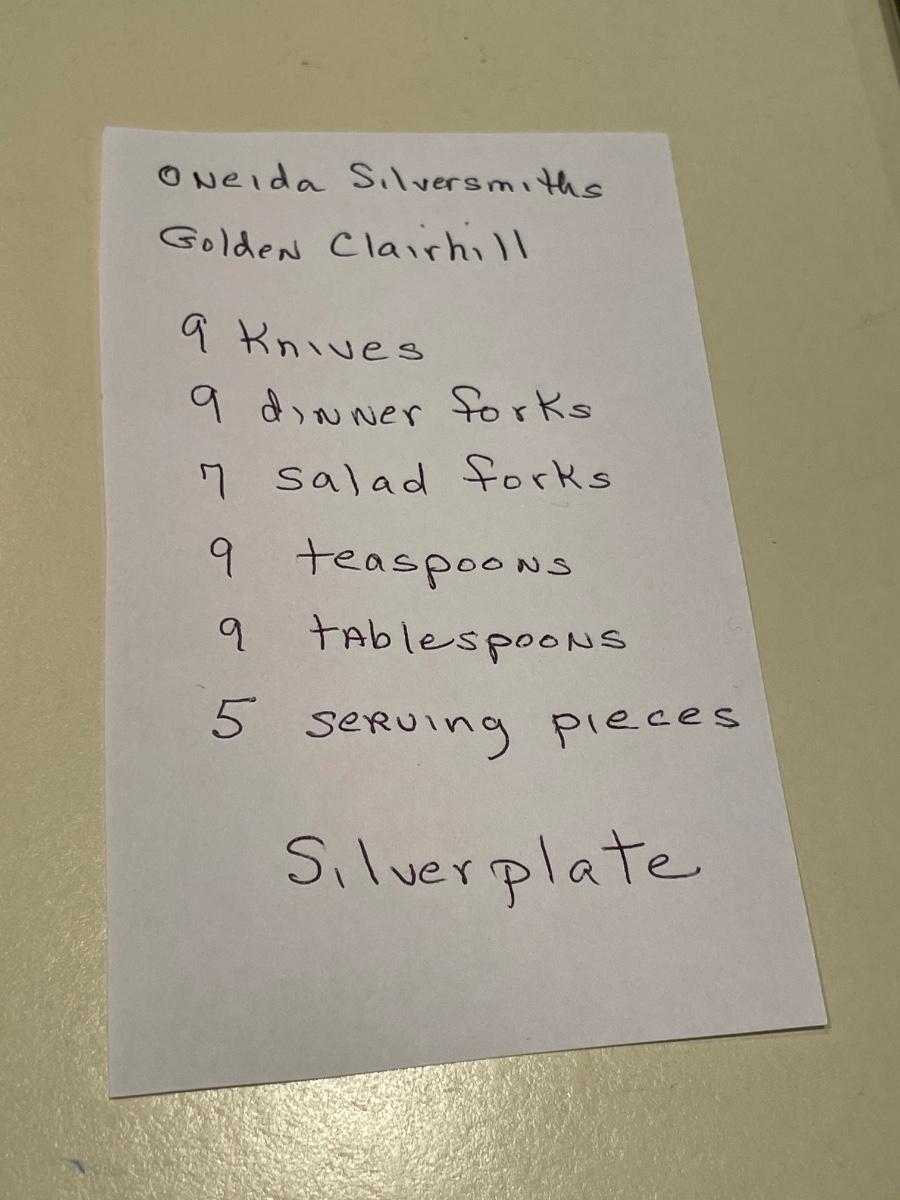 Oneida Silversmiths
Golden Clairhill
9 Knives
9 dinner forks
7 salad forks
9 teaspoons
9 tablespoons
5 serving pieces
Silverplate